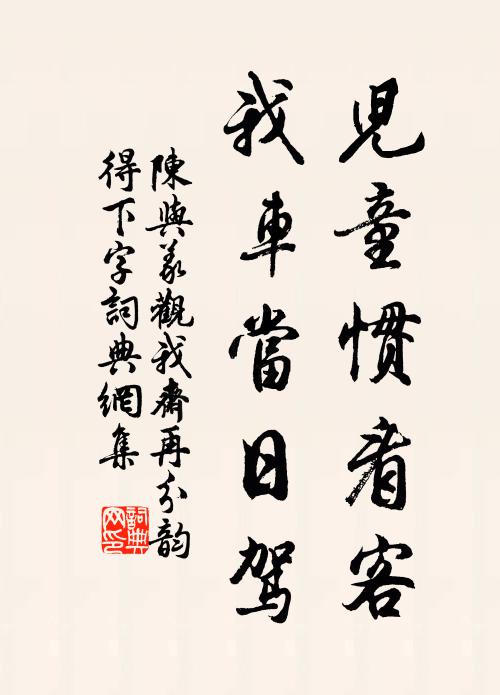 兒童慣看客
我車當日駕
陳與義觀我齋再分韵
得下字詞典網集
詞典網印